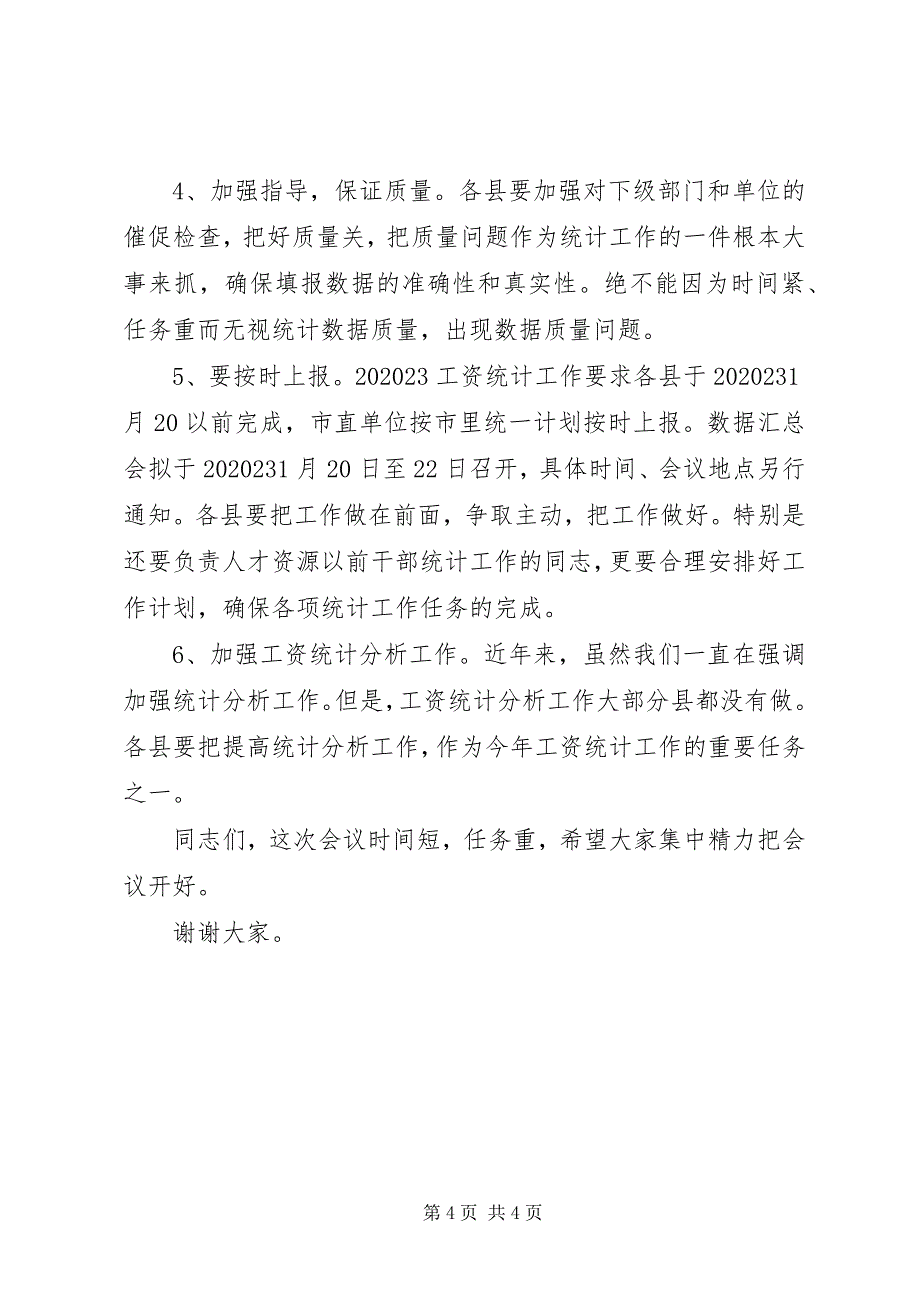 4、加强指导，保证质量。各县要加强对下级部门和单位的
催促检查，把好质量关，把质量问题作为统计工作的一件根本大
事来抓，确保填报数据的准确性和真实性。绝不能因为时间紧、
任务重而无视统计数据质量，出现数据质量问题。
5、要按时上报。202023 工资统计工作要求各县于 2020231
月 20 以前完成，市直单位按市里统一计划按时上报。数据汇总
会拟于 2020231 月 20 日至 22 日召开，具体时间、会议地点另行
通知。各县要把工作做在前面，争取主动，把工作做好。特别是
还要负责人才资源以前干部统计工作的同志，更要合理安排好工
作计划，确保各项统计工作任务的完成。
6、加强工资统计分析工作。近年来，虽然我们一直在强调
加强统计分析工作。但是，工资统计分析工作大部分县都没有做。
各县要把提高统计分析工作，作为今年工资统计工作的重要任务
之一。
同志们，这次会议时间短，任务重，希望大家集中精力把会
议开好。
谢谢大家。
第 4 页 共 4 页